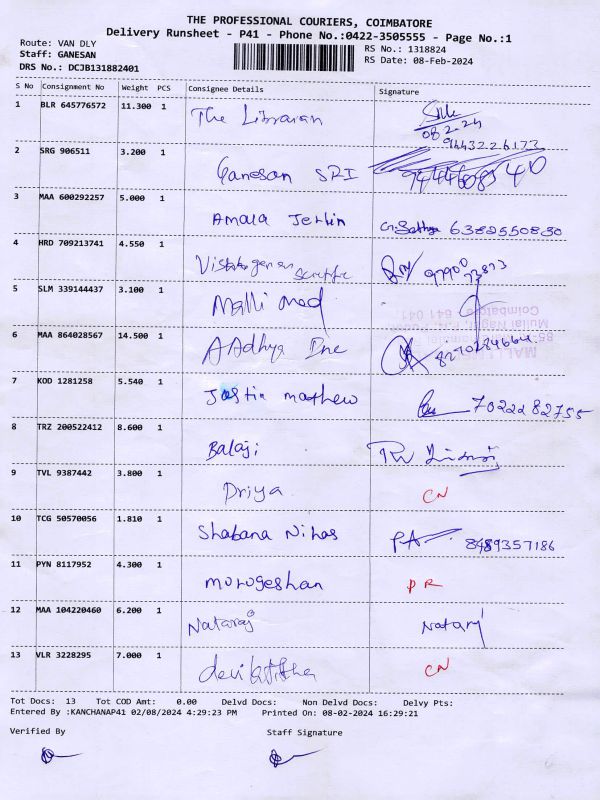 THE PROFESSIONAL COURIERS, COIMBATORE
Delivery Runsheet - P41 - Phone No.:0422-3505555 - Page No.:1
Route: VAN DLY
RS No.: 1318824
Staff: GANESAN
RS Date: 08-Feb-2024
DRS No.: DCJB131882401
S No Consignment No Weight PCS Consignee Details Signature
1 BLR 645776572 11.300 1 The Librarian
08.2.24
9443226173
2 SRG 906511 3.200 1 Ganesan SRI
3 MAA 600292257 5.000 1 Amala Jerlin 6382550830
4 HRD 709213741 4.550 1 97900 73873
5 SLM 339144437 3.100 1 Malli Med
6 MAA 864028567 14.500 1 AAdhya Inc 8270284664
7 KOD 1281258 5.540 1 Jostin mathew 7022282755
8 TRZ 200522412 8.600 1 Balaji
9 TVL 9387442 3.800 1 Priya CN
10 TCG 50570056 1.810 1 Shabana Nihas PA 8489357186
11 PYN 8117952 4.300 1 morogeshan PR
12 MAA 104220460 6.200 1 Nataraj Nataraj
13 VLR 3228295 7.000 1 CN
Tot Docs: 13 Tot COD Amt: 0.00 Delvd Docs: Non Delvd Docs: Delvy Pts:
Entered By :KANCHANAP41 02/08/2024 4:29:23 PM Printed On: 08-02-2024 16:29:21
Verified By Staff Signature